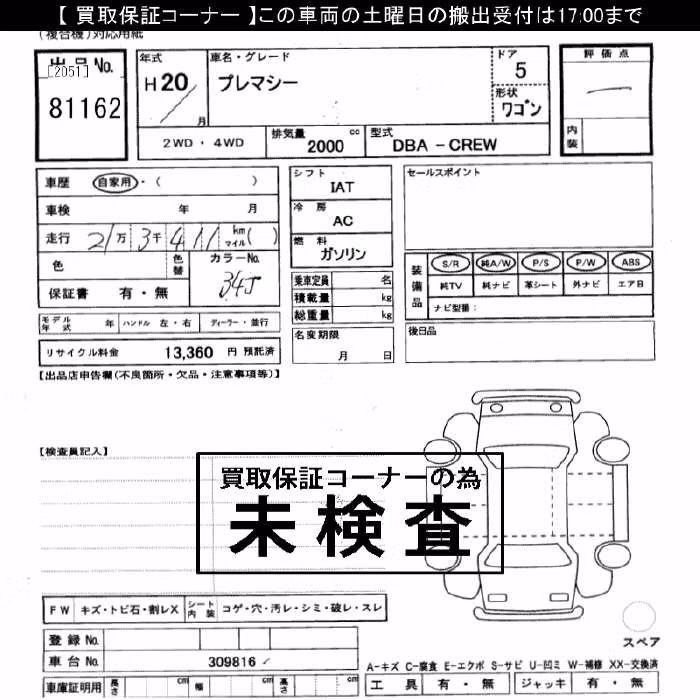 【 買取保証コーナー 】この車両の土曜日の搬出受付は17:00まで
(複合機)対応用紙
出品No.
[2051]
81162
年式
H20
月
車名・グレード
プレマシー
ドア
5
形状
ワゴン
評価点
内装
2WD ・ 4WD
排気量 2000 cc
型式 DBA - CREW
車歴 自家用・( )
車検 年 月
走行 21万 3千 4 11 km マイル( )
色 色替 カラーNo.
34J
保証書 有・無
シフト
IAT
冷房
AC
燃料
ガソリン
乗車定員 名
積載量 kg
総重量 kg
名変期限
月 日
セールスポイント
装備品
S/R 純A/W P/S P/W ABS
純TV 純ナビ 革シート 外ナビ エア日
ナビ型番:
後日品
モデル年式 年 ハンドル 左・右 ディーラー・並行
リサイクル料金 13,360 円 預託済
【出品店申告欄(不良箇所・欠品・注意事項等)】
【検査員記入】
買取保証コーナーの為
未検査
FW キズ・トビ石・割レX シート内装 コゲ・穴・汚レ・シミ・破レ・スレ
登録No.
車台No. 309816
車庫証明用 長さ cm 幅 cm 高さ cm
スペア
A-キズ C-腐食 E-エクボ S-サビ U-凹ミ W-補修 XX-交換済
工具 有・無 ジャッキ 有・無